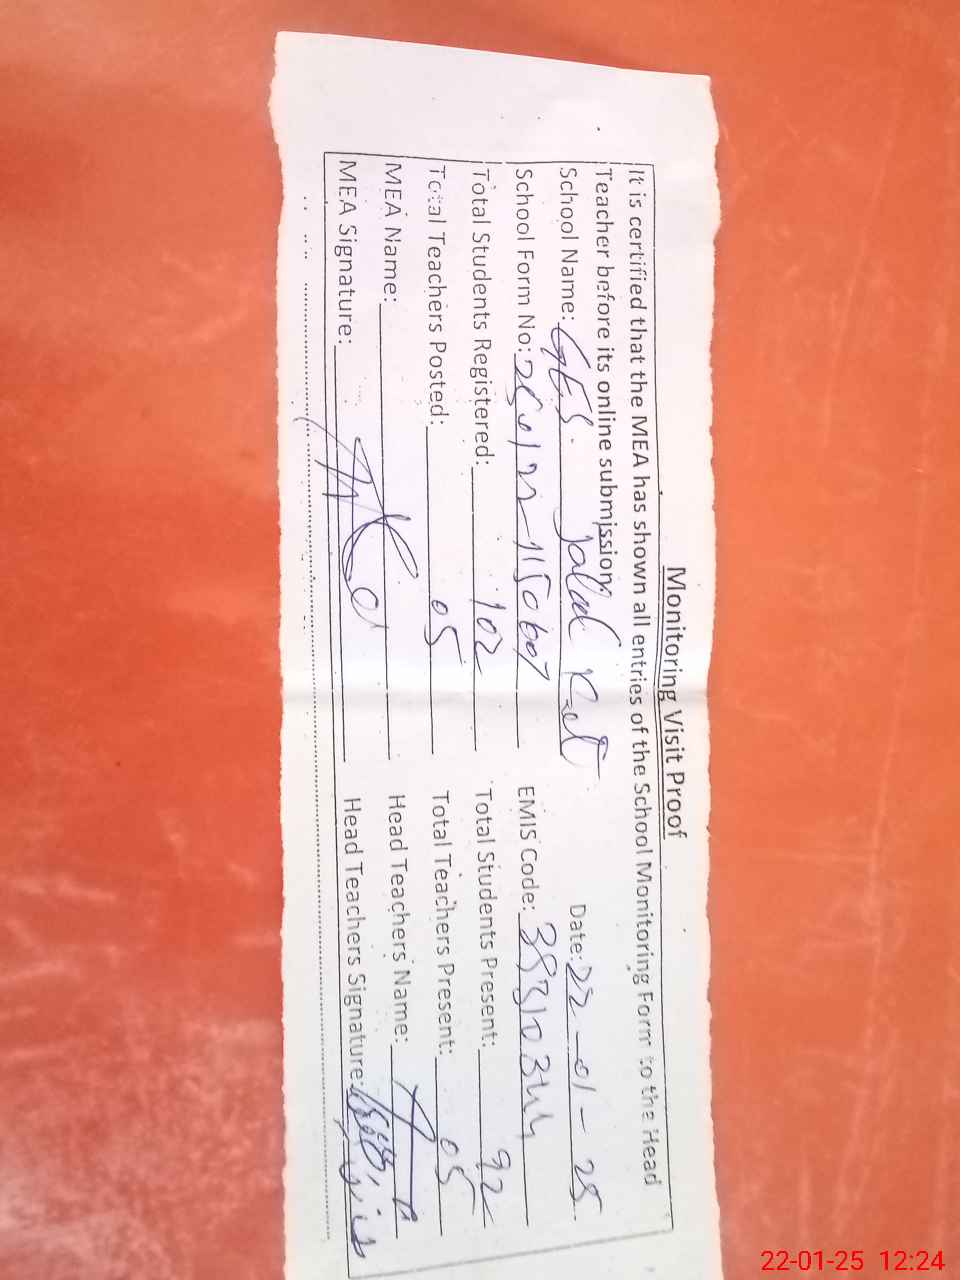 Monitoring Visit Proof
It is certified that the MEA has shown all entries of the School Monitoring Form to the Head
Teacher before its online submission.
School Name: GES. Date: 22-01-25
School Form No: EMIS Code:
Total Students Registered: 102 Total Students Present: 92
Total Teachers Posted: 05 Total Teachers Present: 05
MEA Name: Head Teachers Name:
MEA Signature: Head Teachers Signature:
22-01-25 12:24